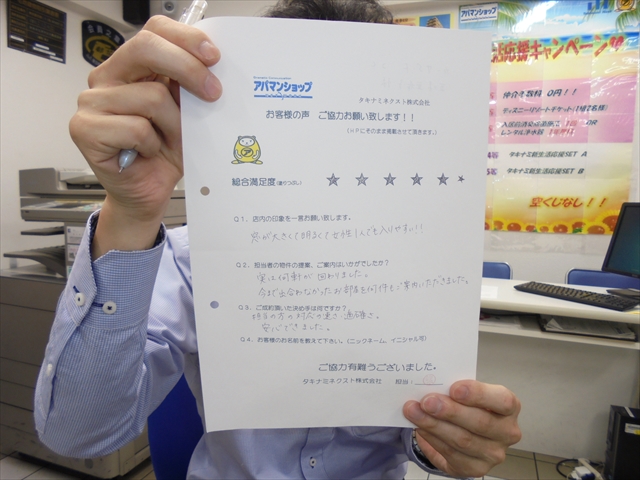 アパマンショップ
タキナミネクスト株式会社
お客様の声 ご協力お願い致します！！
(HPにそのまま掲載させて頂きます。)
総合満足度(塗りつぶし) ★ ★ ★ ★ ★ ★
Q1．店内の印象を一言お願い致します。
窓が大きくて明るくて女性1人でも入りやすい!!
Q2．担当者の物件の提案、ご案内はいかがでしたか？
実は何軒か回わりました。
今まで出会わなかったお部屋を何件もご案内いただきました。
Q3．ご成約頂いた決め手は何ですか？
担当の方の対応の速さ 適確さ。
安心できました。
Q4．お客様のお名前を教えて下さい。(ニックネーム、イニシャル可)
ご協力有難うございました。
タキナミネクスト株式会社 担当：
アパマンショップ
応援キャンペーン
仲介手数料 0円！！
OR
レンタル浄水器
タキナミ新生活応援SET A
タキナミ新生活応援SET B
空くじなし！！